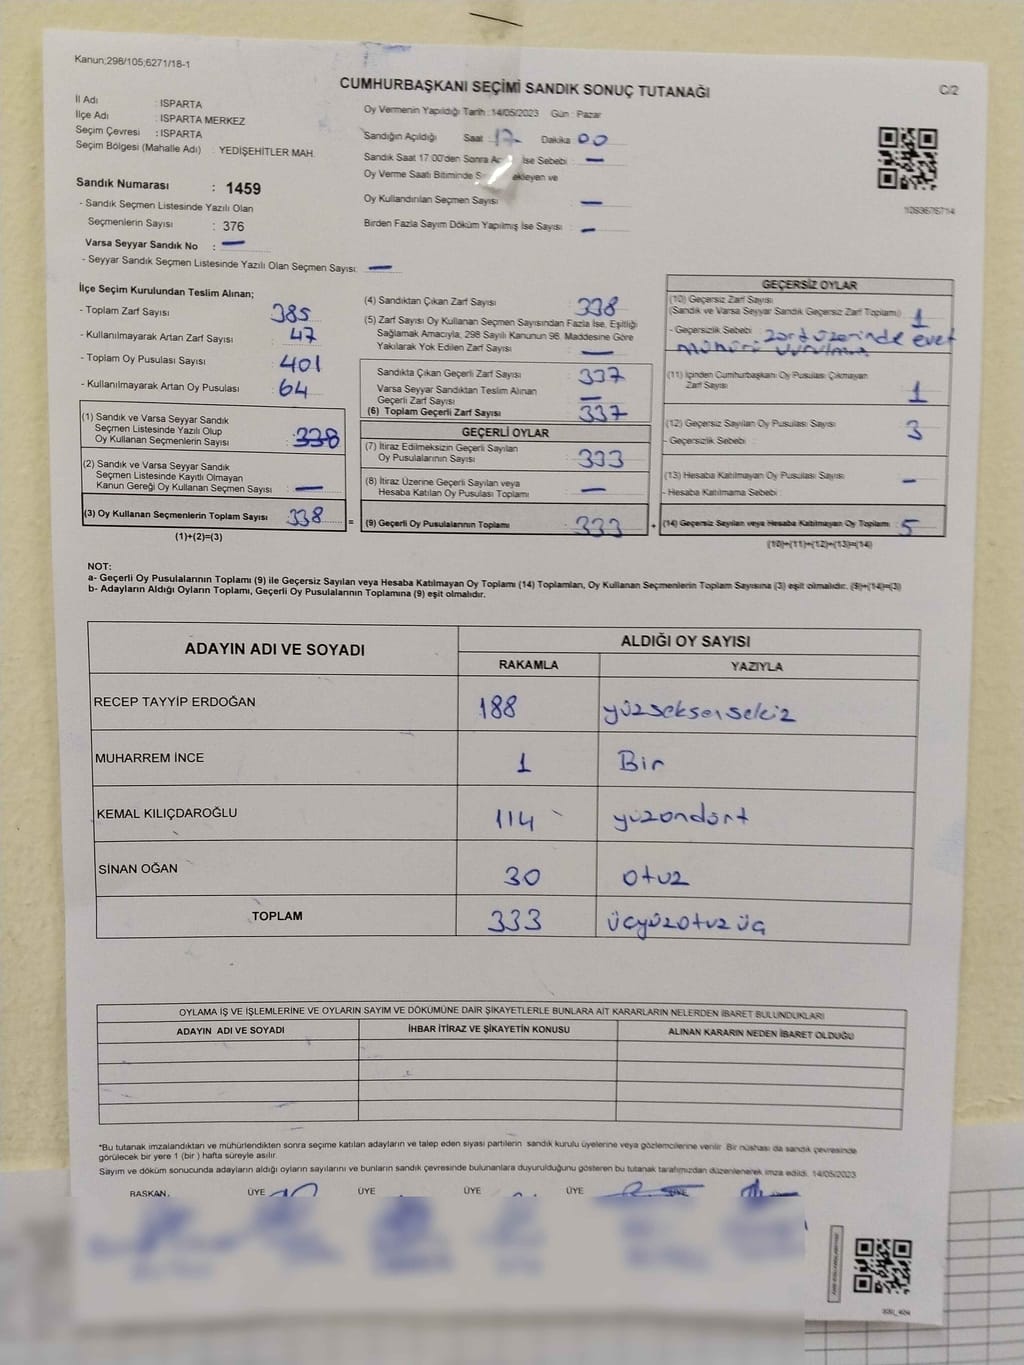 Kanun;298/105;6271/18-1
CUMHURBAŞKANI SEÇİMİ SANDIK SONUÇ TUTANAĞI
C/2
İl Adı : ISPARTA
İlçe Adı : ISPARTA MERKEZ
Seçim Çevresi : ISPARTA
Seçim Bölgesi (Mahalle Adı) : YEDİŞEHİTLER MAH.
Sandık Numarası : 1459
- Sandık Seçmen Listesinde Yazılı Olan
Seçmenlerin Sayısı : 376
Varsa Seyyar Sandık No : —
- Seyyar Sandık Seçmen Listesinde Yazılı Olan Seçmen Sayısı: —
Oy Vermenin Yapıldığı Tarih :14/05/2023 Gün : Pazar
Sandığın Açıldığı Saat : 17 Dakika 00
Sandık Saat 17:00'den Sonra İse Sebebi : —
Oy Verme Saati Bitiminde ekleyen ve
Oy Kullandırılan Seçmen Sayısı : —
Birden Fazla Sayım Döküm Yapılmış İse Sayısı : —
İlçe Seçim Kurulundan Teslim Alınan;
- Toplam Zarf Sayısı : 385
- Kullanılmayarak Artan Zarf Sayısı : 47
- Toplam Oy Pusulası Sayısı : 401
- Kullanılmayarak Artan Oy Pusulası : 64
(1) Sandık ve Varsa Seyyar Sandık
Seçmen Listesinde Yazılı Olup
Oy Kullanan Seçmenlerin Sayısı : 338
(2) Sandık ve Varsa Seyyar Sandık
Seçmen Listesinde Kayıtlı Olmayan
Kanun Gereği Oy Kullanan Seçmen Sayısı : —
(3) Oy Kullanan Seçmenlerin Toplam Sayısı : 338
(1)+(2)=(3)
=
(4) Sandıktan Çıkan Zarf Sayısı : 338
(5) Zarf Sayısı Oy Kullanan Seçmen Sayısından Fazla İse, Eşitliği
Sağlamak Amacıyla, 298 Sayılı Kanunun 98. Maddesine Göre
Yakılarak Yok Edilen Zarf Sayısı : —
Sandıkta Çıkan Geçerli Zarf Sayısı : 337
Varsa Seyyar Sandıktan Teslim Alınan
Geçerli Zarf Sayısı : —
(6) Toplam Geçerli Zarf Sayısı : 337
GEÇERLİ OYLAR
(7) İtiraz Edilmeksizin Geçerli Sayılan
Oy Pusulalarının Sayısı : 333
(8) İtiraz Üzerine Geçerli Sayılan veya
Hesaba Katılan Oy Pusulası Toplamı : —
(9) Geçerli Oy Pusulalarının Toplamı : 333
+
GEÇERSİZ OYLAR
(10) Geçersiz Zarf Sayısı
(Sandık ve Varsa Seyyar Sandık Geçersiz Zarf Toplamı) : 1
- Geçersizlik Sebebi : zarf üzerinde evet
mühürü vurulmuş
(11) İçinden Cumhurbaşkanı Oy Pusulası Çıkmayan
Zarf Sayısı : 1
(12) Geçersiz Sayılan Oy Pusulası Sayısı : 3
- Geçersizlik Sebebi :
(13) Hesaba Katılmayan Oy Pusulası Sayısı : —
- Hesaba Katılmama Sebebi :
(14) Geçersiz Sayılan veya Hesaba Katılmayan Oy Toplamı : 5
(10)+(11)+(12)+(13)=(14)
NOT:
a- Geçerli Oy Pusulalarının Toplamı (9) ile Geçersiz Sayılan veya Hesaba Katılmayan Oy Toplamı (14) Toplamları, Oy Kullanan Seçmenlerin Toplam Sayısına (3) eşit olmalıdır. (9)+(14)=(3)
b- Adayların Aldığı Oyların Toplamı, Geçerli Oy Pusulalarının Toplamına (9) eşit olmalıdır.
ADAYIN ADI VE SOYADI
ALDIĞI OY SAYISI
RAKAMLA YAZIYLA
RECEP TAYYİP ERDOĞAN 188 yüzseksensekiz
MUHARREM İNCE 1 Bir
KEMAL KILIÇDAROĞLU 114 yüzondört
SİNAN OĞAN 30 otuz
TOPLAM 333 üçyüzotuz üç
OYLAMA İŞ VE İŞLEMLERİNE VE OYLARIN SAYIM VE DÖKÜMÜNE DAİR ŞİKAYETLERLE BUNLARA AİT KARARLARIN NELERDEN İBARET BULUNDUKLARI
ADAYIN ADI VE SOYADI İHBAR İTİRAZ VE ŞİKAYETİN KONUSU ALINAN KARARIN NEDEN İBARET OLDUĞU
*Bu tutanak imzalandıktan ve mühürlendikten sonra seçime katılan adayların ve talep eden siyasi partilerin sandık kurulu üyelerine veya gözlemcilerine verilir. Bir nüshası da sandık çevresinde
görülecek bir yere 1 (bir ) hafta süreyle asılır.
Sayım ve döküm sonucunda adayların aldığı oyların sayılarını ve bunların sandık çevresinde bulunanlara duyurulduğunu gösteren bu tutanak tarafımızdan düzenlenerek imza edildi. 14/05/2023
BAŞKAN, ÜYE ÜYE ÜYE ÜYE